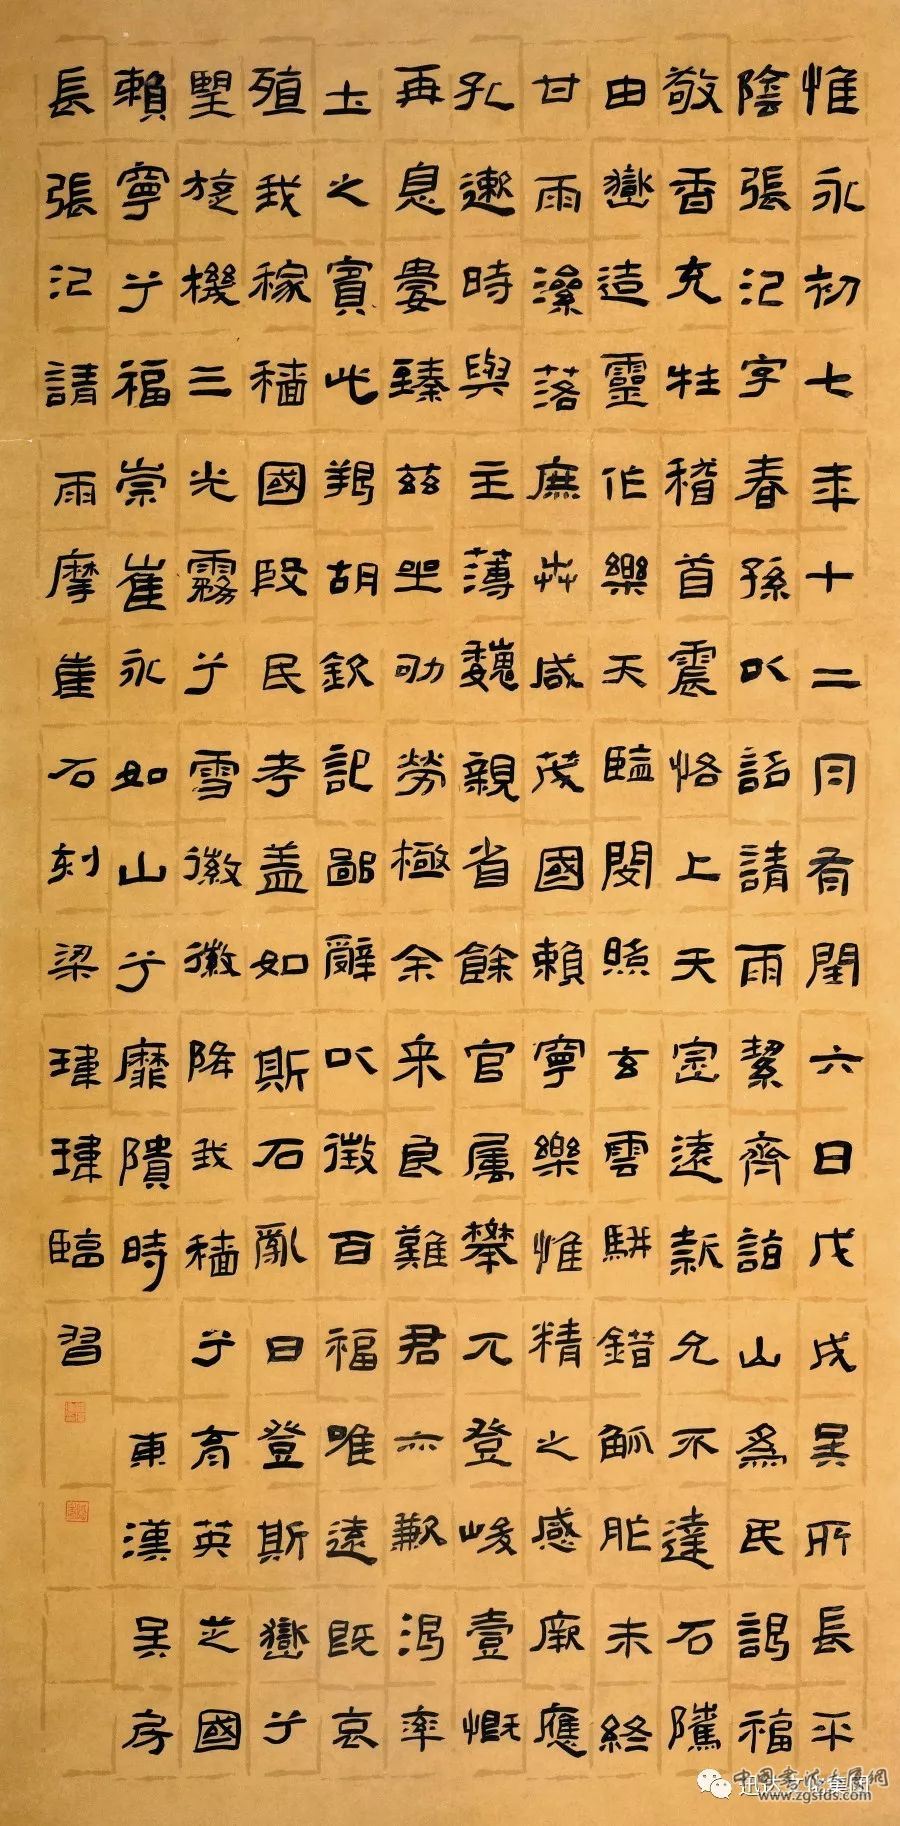 惟永初七年十二月有閏六日戊戌吳房長平
陰張汜字春孫以詔請雨絜齊詣山為民謁福
敬香充牲稽首震恪上天寔遠款允不達石隲
由嶽造靈作樂天臨閔照玄雲駢錯觚胙未終
甘雨瀿落庶卉咸茂國賴寧樂惟精之感厥應
孔遬時與主薄魏親省餘官属攀兀登峻壹慨
再息屢臻兹坐劬勞極余来良難君亦歉渴率
土之賓此胡欽記鄙辭以徵百福唯遠既哀
殖我稼穡國殷民考盖如斯石亂曰登斯嶽兮
朢旋機三光霧兮雪徽徽降我穡兮育英芝國
賴寧兮福崇崔永如山兮靡隤時 東漢吳房
長張汜請雨摩崖石刻梁瑋瑋臨習
中国书法大展网
www.zgsfds.com